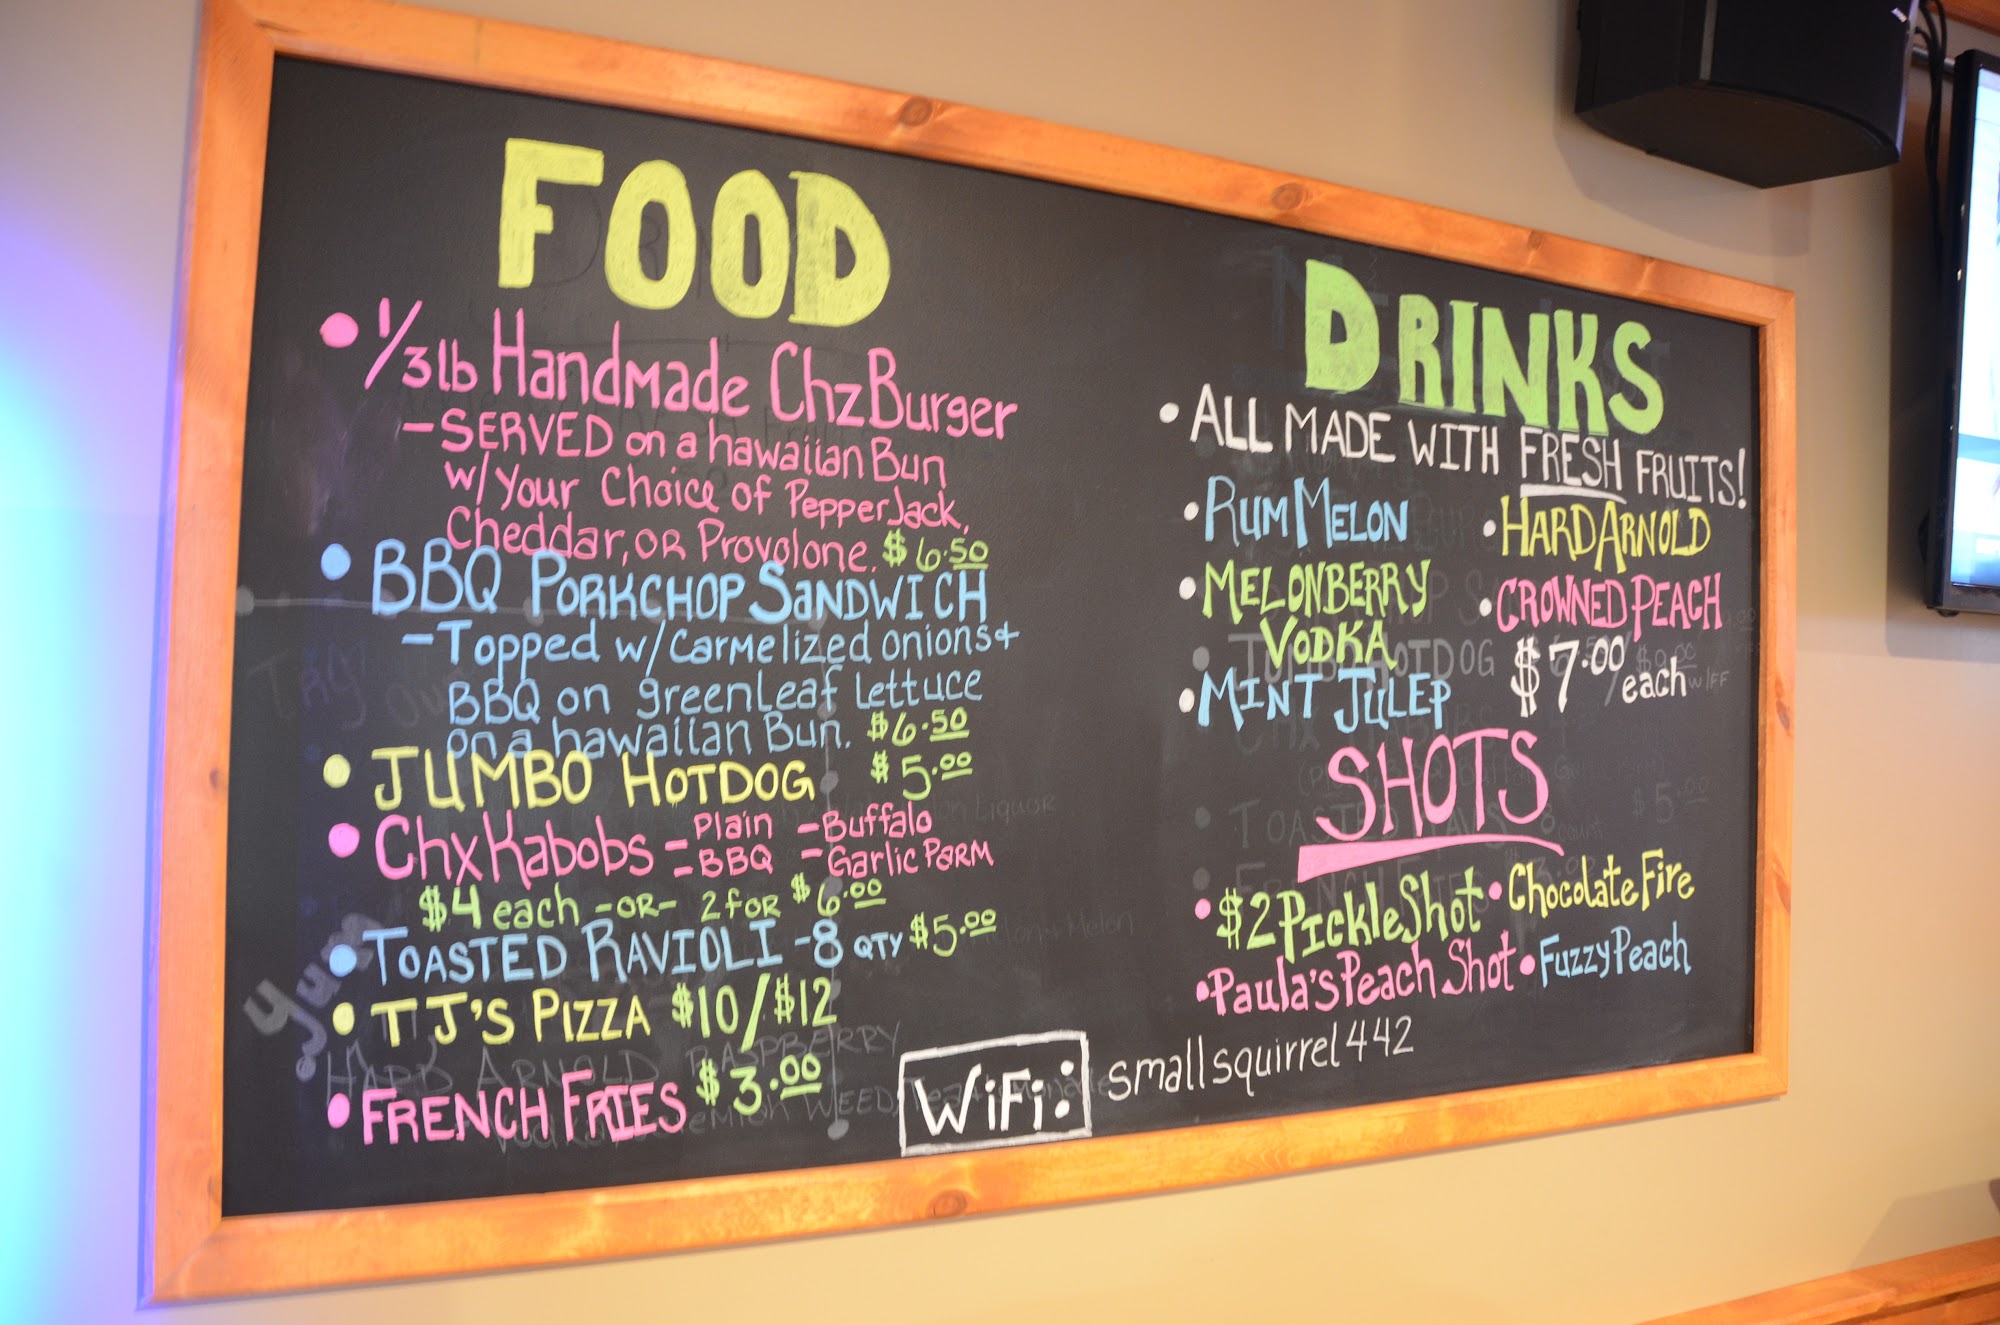 FOOD
• 1/3 lb Handmade ChzBurger
- SERVED on a hawaiian Bun
w/ Your Choice of PepperJack,
Cheddar, OR Provolone. $6.50
• BBQ PORKCHOP SANDWICH
- Topped w/ carmelized onions +
BBQ on greenleaf lettuce
on a hawaiian Bun. $6.50
• JUMBO HOTDOG $5.00
• Chx Kabobs - Plain - Buffalo
- BBQ - Garlic Parm
$4 each -OR- 2 for $6.00
• TOASTED RAVIOLI - 8 QTY $5.00
• TJ'S PIZZA $10/$12
• FRENCH FRIES $3.00
DRINKS
• ALL MADE WITH FRESH FRUITS!
• RUM MELON • HARD ARNOLD
• MELONBERRY • CROWNED PEACH
VODKA
• MINT JULEP $7.00 each
SHOTS
• $2 PickleShot • Chocolate Fire
• Paula's Peach Shot • Fuzzy Peach
WiFi: smallsquirrel442
TOASTED
HARD ARNOLD RASPBERRY
Yum